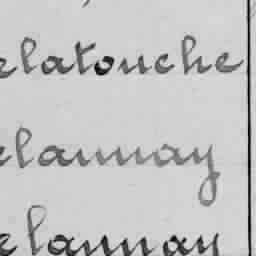 elatouche
elaunay
elaunay